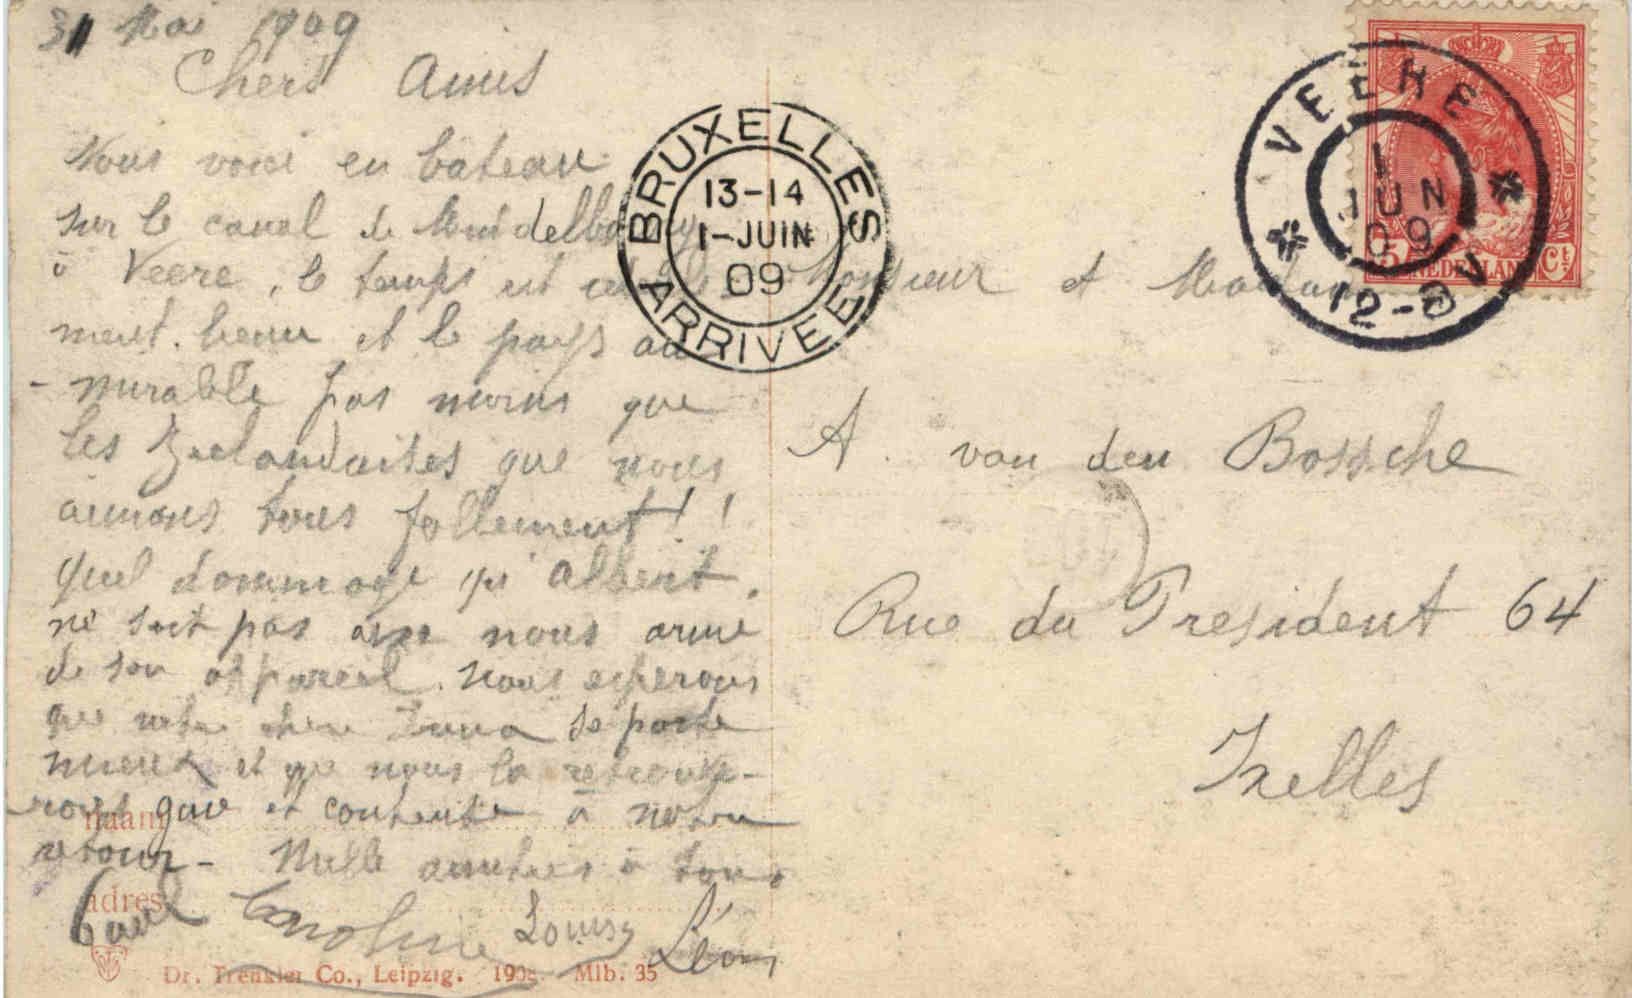 31 Mai 1909
Chers Amis
Nous voici en bateau
sur le canal de Middelbourg
à Veere, le temps est
ment beau et le pays ad
-mirable pas moins que
les Zuelandaises que nous
aimons tous follement!!
Quel dommage qu'Albert
ne soit pas avec nous armé
de son appareil. Nous esperons
que notre chere se porte
mieux et que nous la retrouve-
ront gaie et contente à notre
retour - Mille amitiés à tous
Caroline Louisy Léon
naam
adres
Dr. Trenkler Co., Leipzig. 190 Mlb. 35
BRUXELLES
13-14
1-JUIN
09
ARRIVEE
VEERE
1
JUN
09
12-
5 NEDERLAND Ct
Monsieur et Madame
A. van den Bossche
Rue du President 64
Ixelles